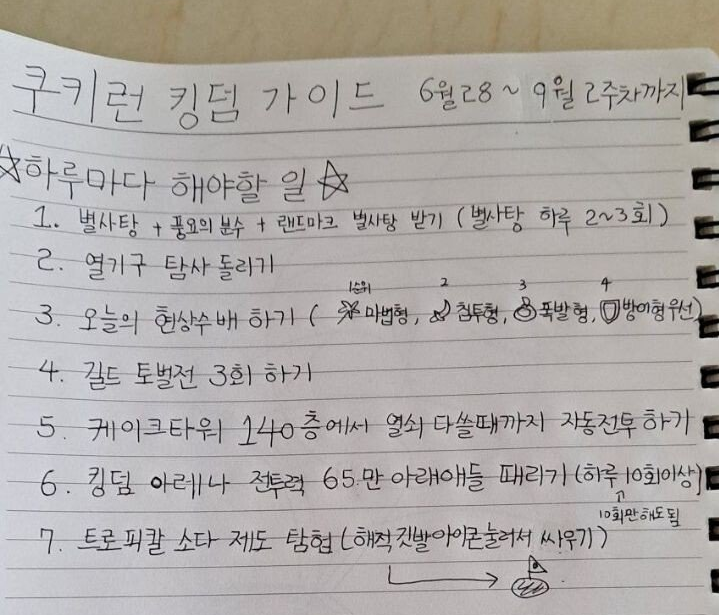 쿠키런 킹덤 가이드 6월28 ~ 9월 2주차까지
☆하루마다 해야할 일☆
1. 별사탕 + 풍요의 분수 + 랜드마크 별사탕 받기 (별사탕 하루 2~3회)
2. 열기구 탐사 돌리기
1순위 2 3 4
3. 오늘의 현상수배 하기 ( 마법형, 침투형, 폭발형, 방어형 우선)
4. 길드 토벌전 3회 하기
5. 케이크타워 140층에서 열쇠 다쓸때까지 자동전투 하기
6. 킹덤 아레나 전투력 65만 아래애들 때리기 (하루 10회이상)
10회만해도됨
7. 트로피칼 소다 제도 탐험 (해적깃발아이콘눌러서 싸우기)